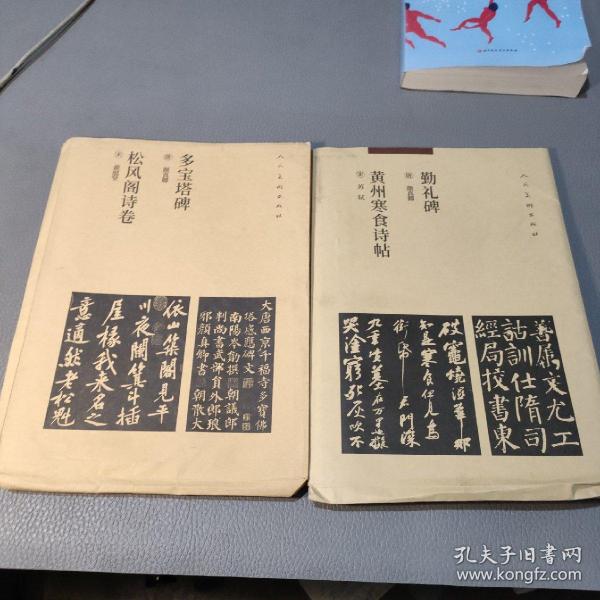 多宝塔碑
唐 颜真卿
松风阁诗卷
宋 黄庭坚
大唐西京千福寺多宝佛
塔感应碑文
南阳岑勋撰 朝议郎
判尚书武部员外郎琅
邪颜真卿书 朝散大
依山筑阁见平
川夜阑箕斗插
屋椽我来名之
意适然老松魁
人民美术出版社
勤礼碑
唐 颜真卿
黄州寒食诗帖
宋 苏轼
善属文尤工
诂训仕隋司
經局校書東
破竈燒湿葦那
知是寒食但見烏
銜帋君門深
九重墳墓在万里也擬
哭塗窮死灰吹不
孔夫子旧书网
www.kongfz.com